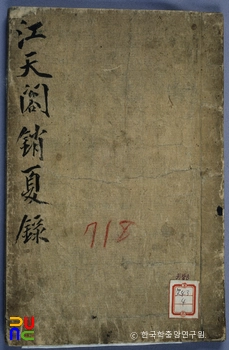 江天閣銷夏錄
718
© 한국학중앙연구원